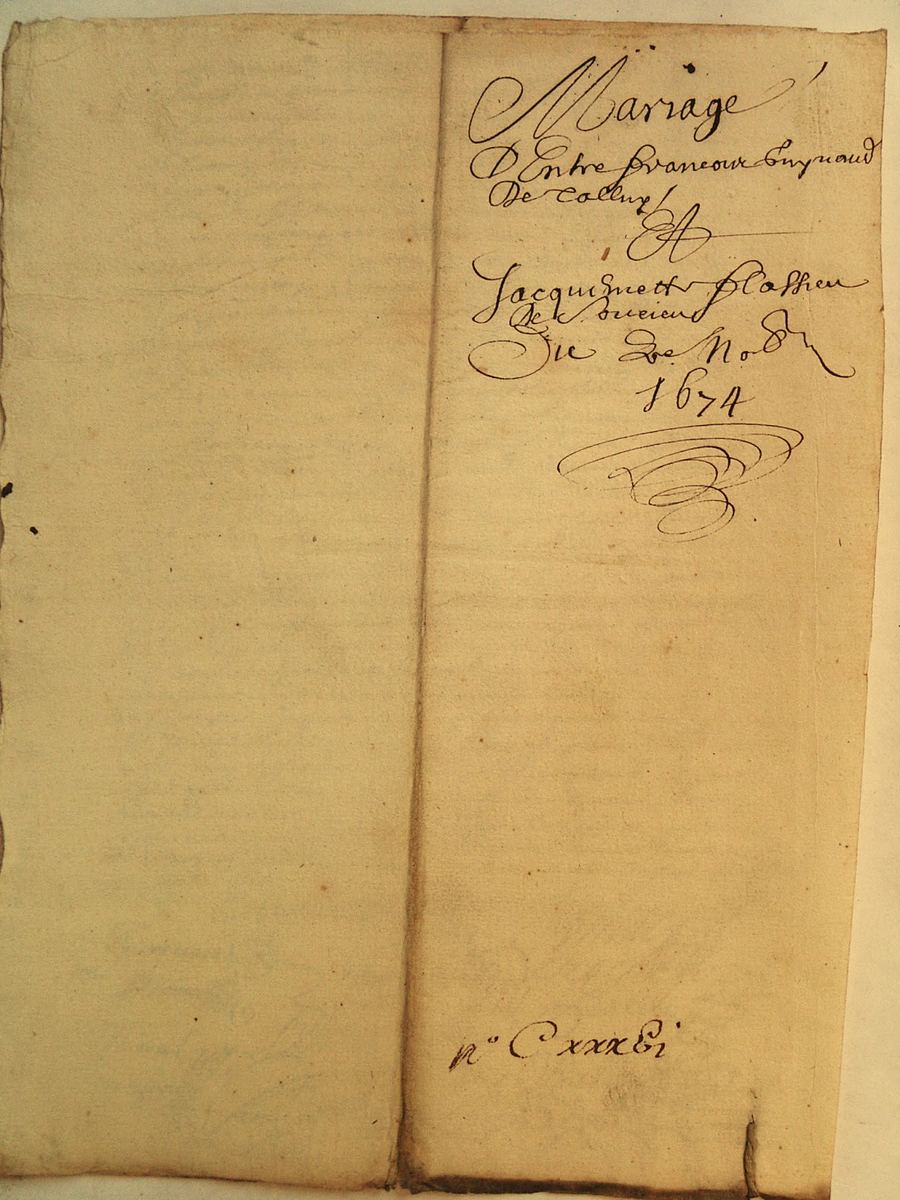 Mariage
D'Entre francoix Guynaud
De Talluy
Et
Jacquemette
De Soucieu
Du 2.e No
1674
n° Cxxxvi